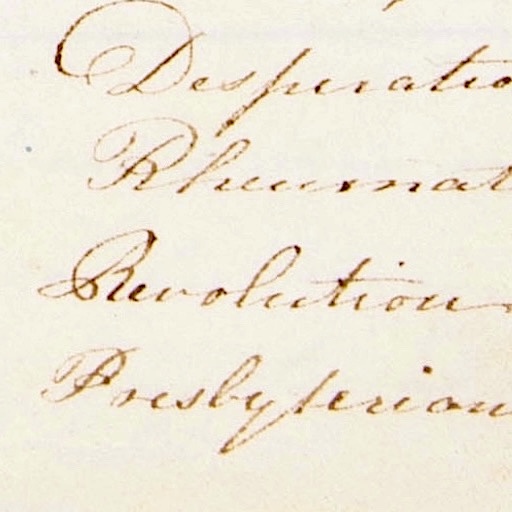 Desperatio
Rheumat
Revolution
Presbyterian